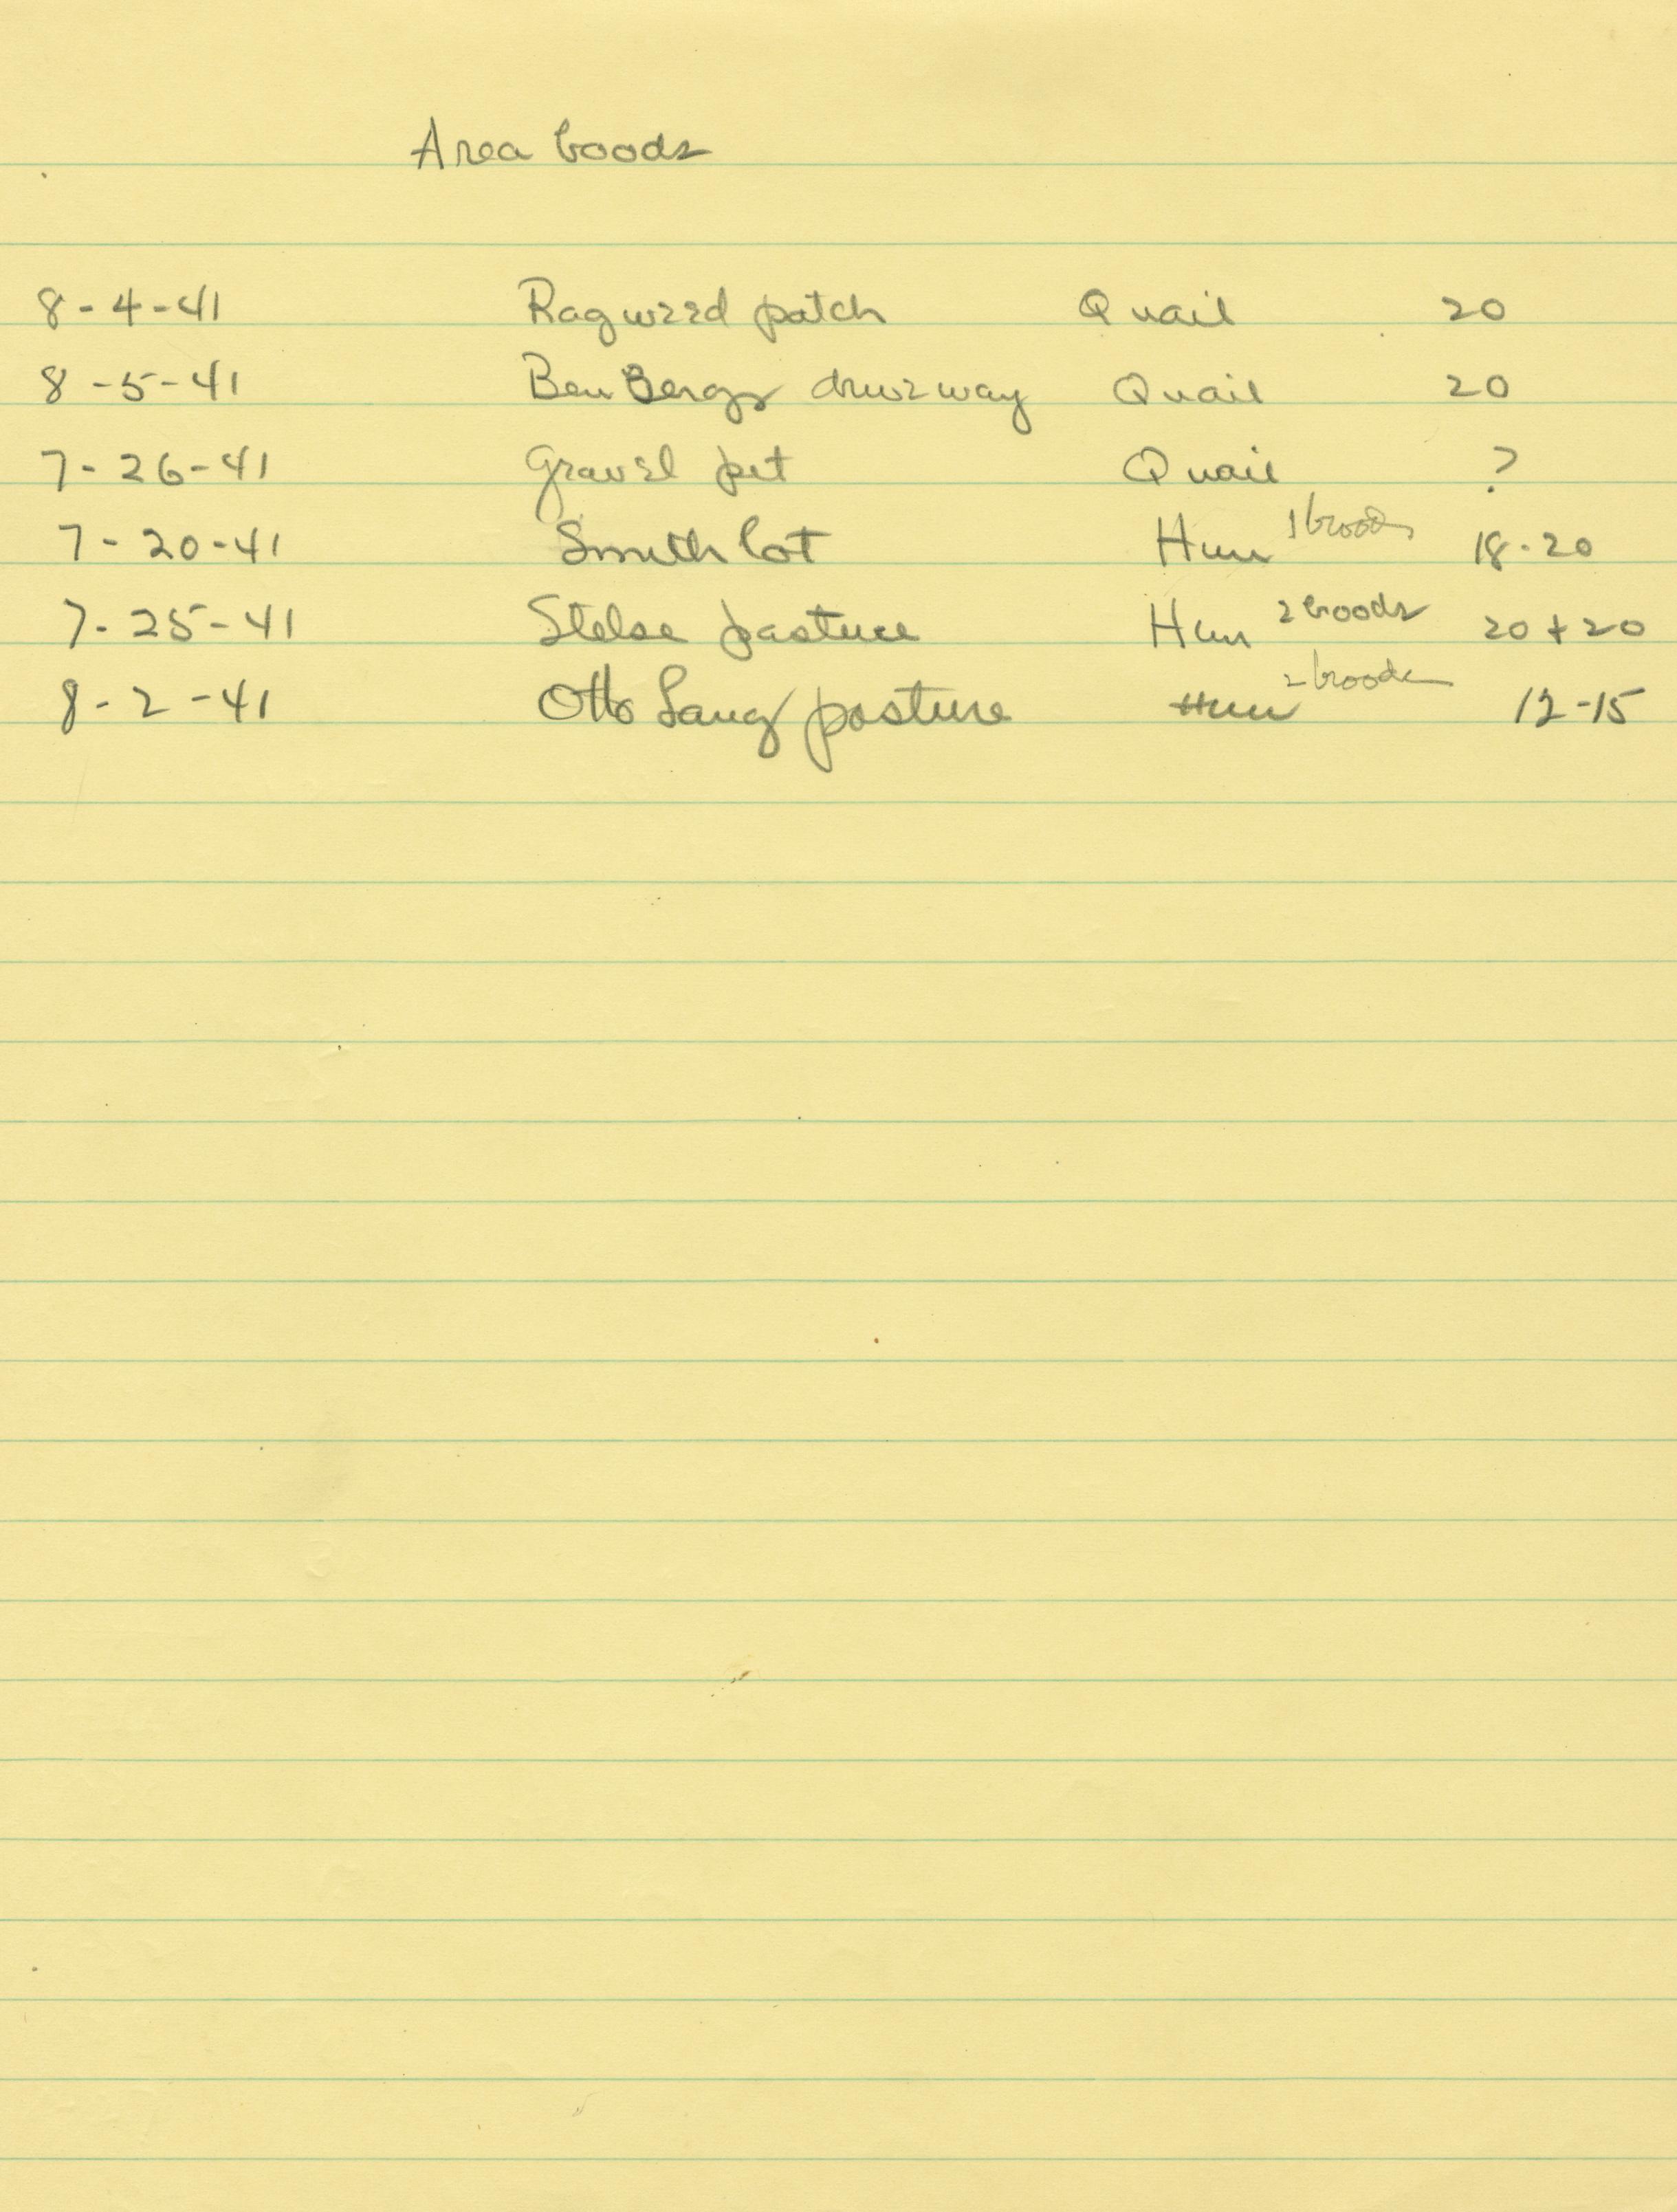 Area boods
8-4-41 Ragweed patch Quail 20
8-5-41 Ben Bergs driveway Quail 20
7-26-41 Gravel pit Quail ?
7-20-41 Smith lot Hun 1 brood 18-20
7-25-41 Stelse pasture Hun 2 broods 20 + 20
8-2-41 Otto Lang pasture Hun 2 broods 12-15